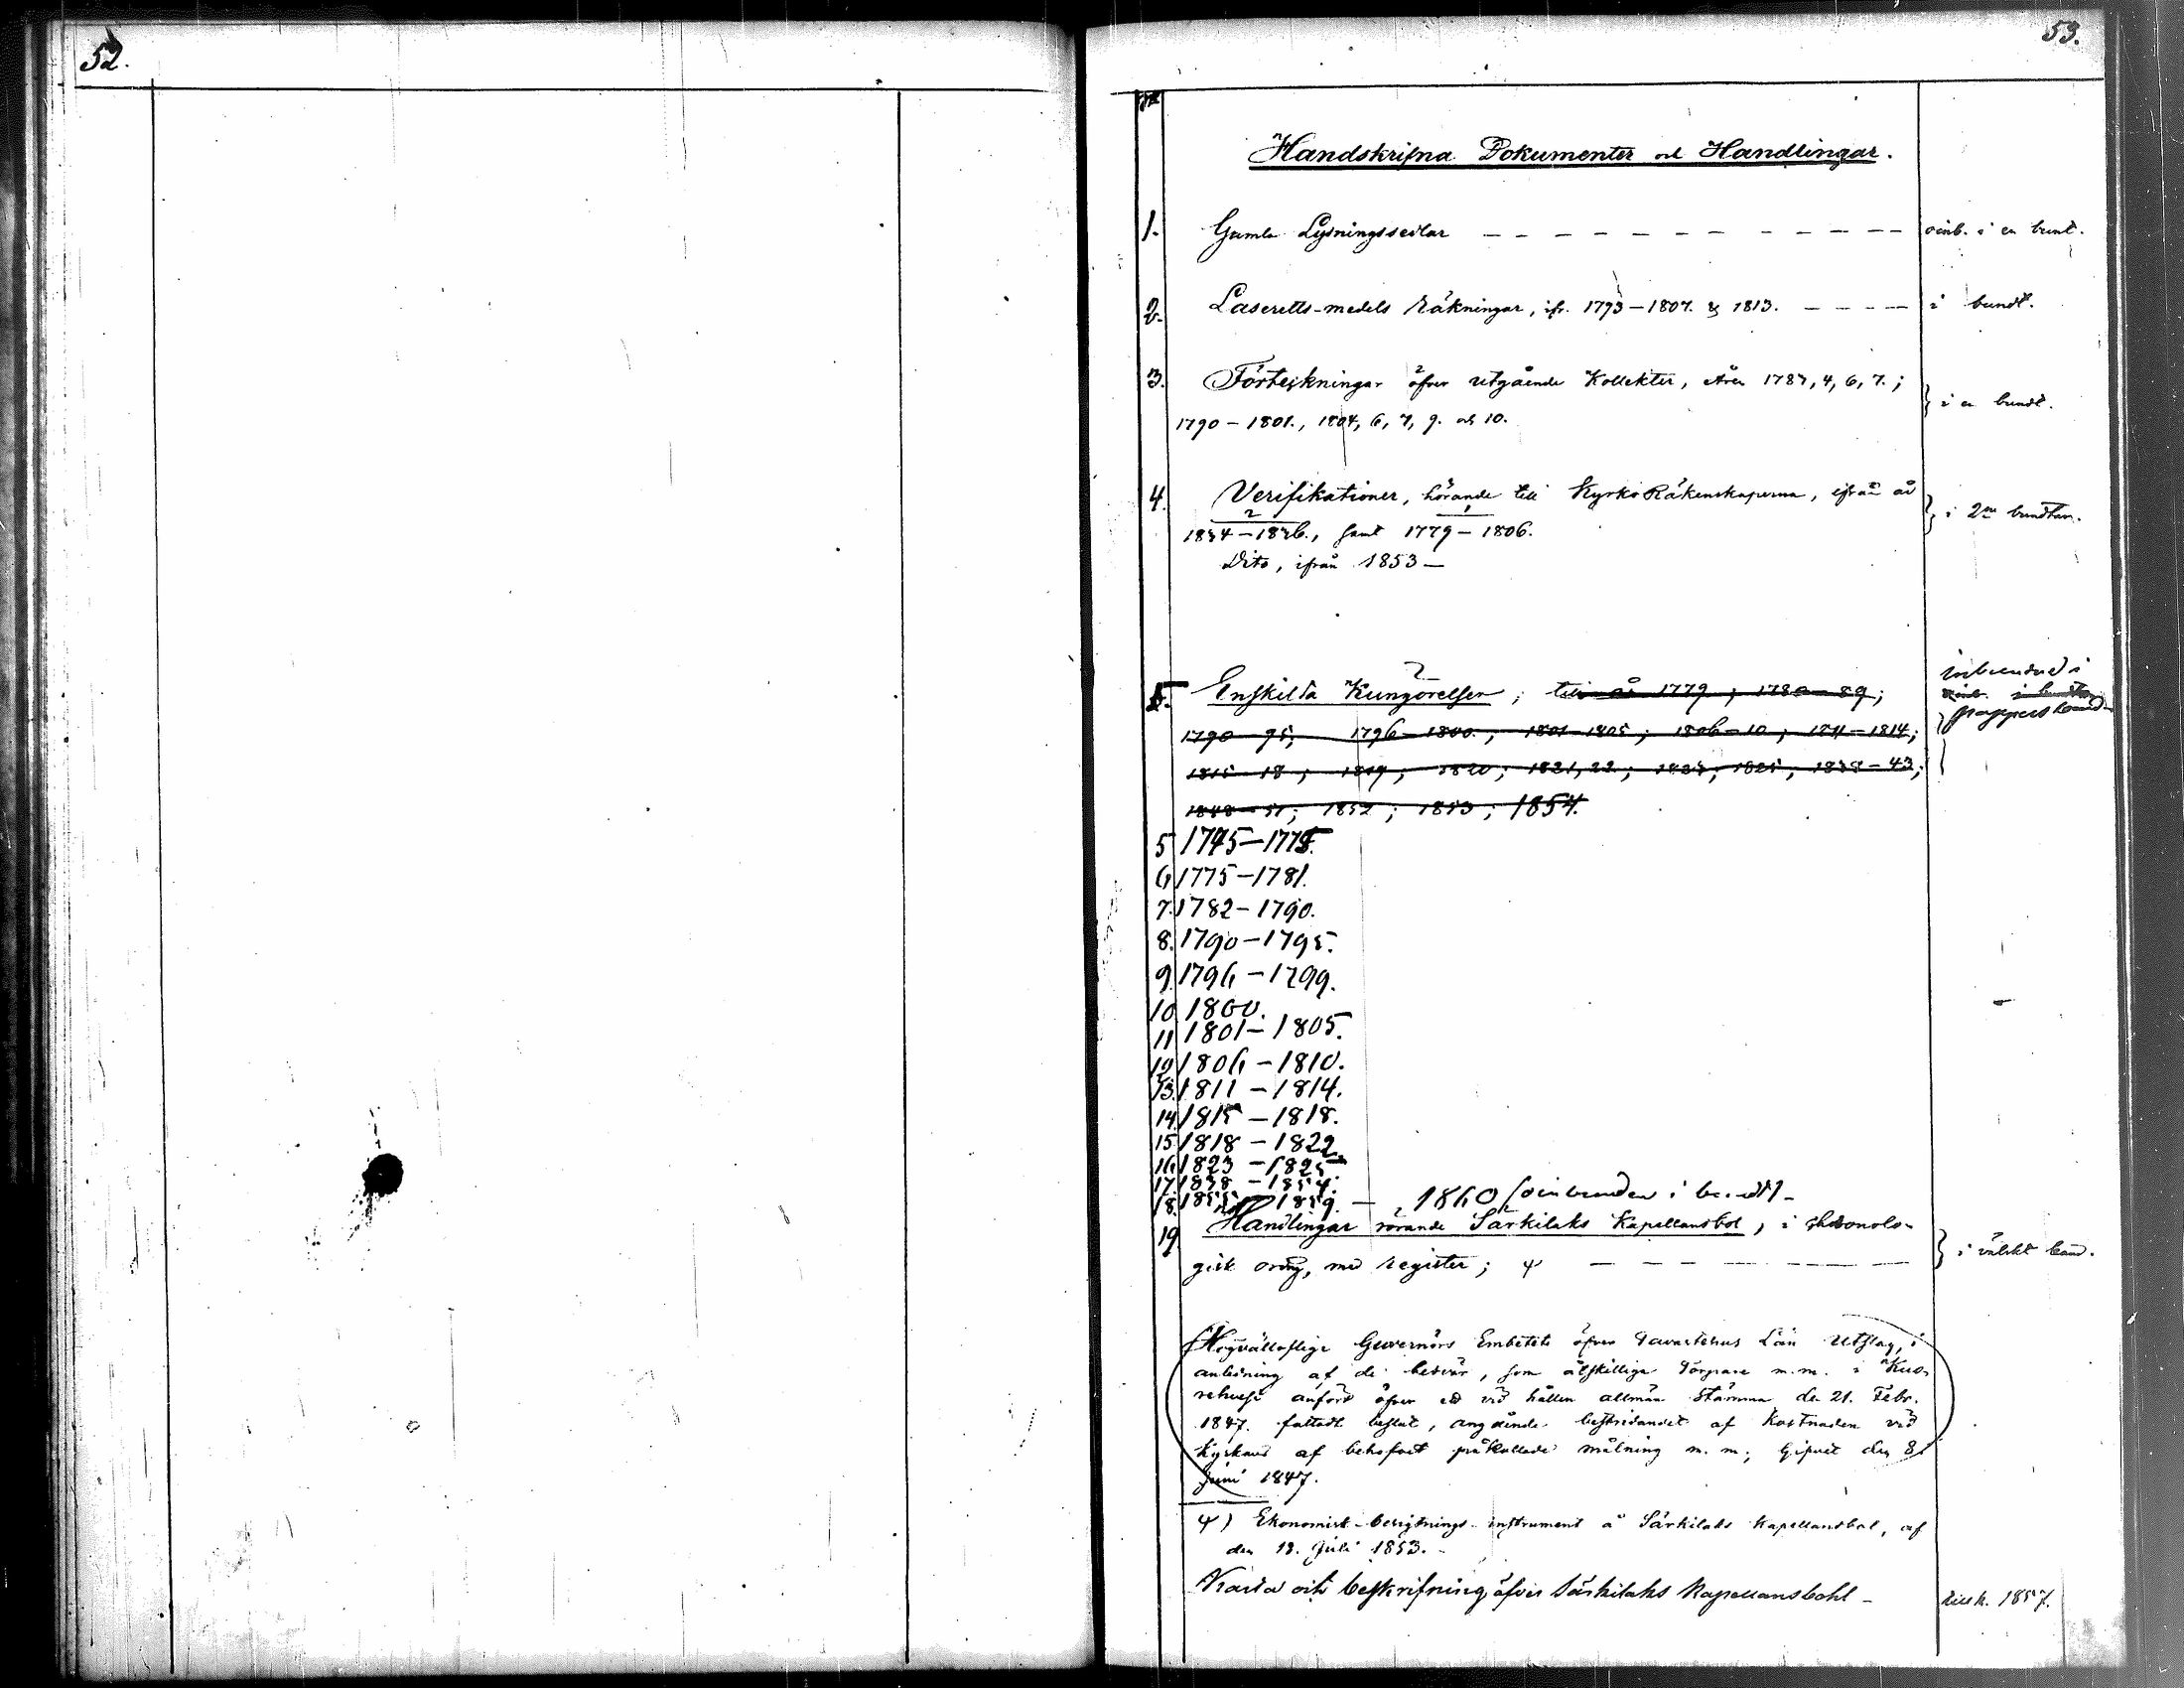 52.
53.
Handskrifna Dokumenter och Handlingar.
1. Gamla Lysningssedlar — — — — — — — — — — oinb. i en bunt.
2. Lasaretts-medels Räkningar, ifr. 1793–1807. & 1813. — — — — i bundt.
3. Förteckningar öfver utgående Kollekter, åren 1787, 4, 6, 7.;
1790–1801., 1804, 6, 7, 9. och 10. i en bundt.
4. Verifikationer, hörande till KyrkoRäkenskaperna, ifrån år
1834–1836., samt 1779–1806. i 2ne bundtar.
Dito, ifrån 1853–
5. Enskilda Kungörelser; till år 1779; 1780–89;
inbundna i
oinb. i bundtar
pappersband
1790–95; 1796–1800.; 1801–1805; 1806–10; 1811–1814;
1815–18; 1819; 1820; 1821, 22; 1823; 1825; 1838–43;
1848–51; 1852; 1853; 1854.
5 1745–1775.
6 1775–1781.
7. 1782–1790.
8. 1790–1795.
9. 1796–1799.
10 1800.
11 1801–1805.
12 1806–1810.
13. 1811–1814.
14. 1815–1818.
15 1818–1822.
16 1823–1825
17 1838–1854.
18. 1855–1859. — 1860 (oinbunden i bundt) –
19. Handlingar rörande Särkilaks Kapellansbol, i chronolo-
gisk ordng, med register; ψ — — — — — — i välskt band.
Högvälloflige Guvernörs Embetets öfver Tavastehus Län Utslag, i
anledning af de besvär, som åtskillige Torpare m.m. i Kuo-
rehvesi anfört öfver ett vid hållen allmän Stämma den 21. Febr.
1847. fattadt beslut, angående bestridandet af Kostnaden vid
Kyrkans af behofvet påkallade målning m. m; Gifvet den 8
Juni 1847.
ψ) Ekonomisk-besigtnings-instrument å Särkilaks Kapellansbol, af
den 19. Juli 1853.
Karta och beskrifning öfver Särkilaks Kapellansbohl – 1857.